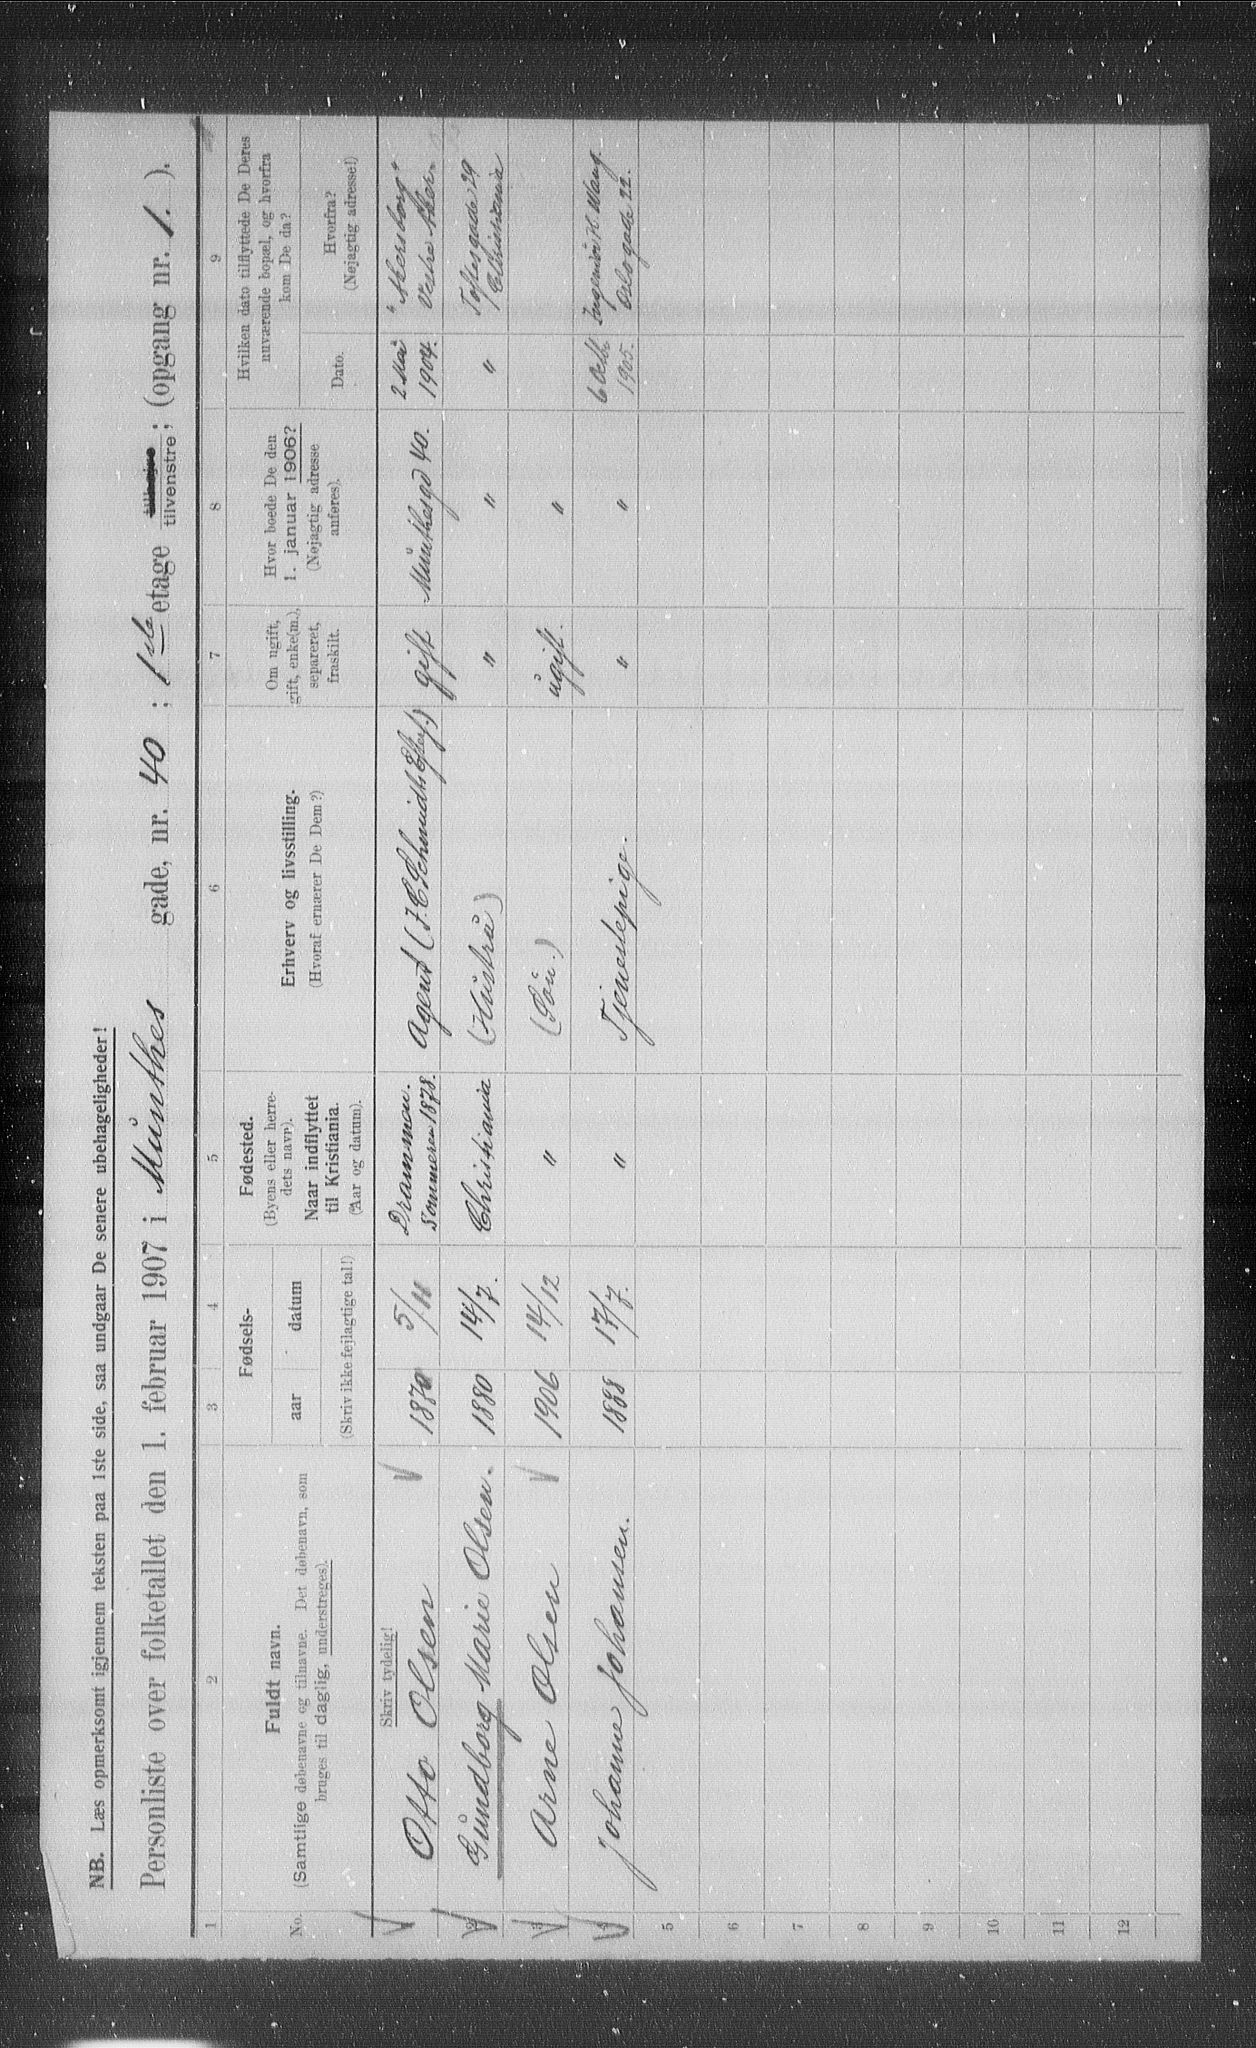 NB. Læs opmerksomt igjennem teksten paa 1ste side, saa undgaar De senere ubehageligheder!
Personliste over folketallet den 1. februar 1907 i Munthes gade, nr. 40 ; 1ste etage tilvenstre; (opgang nr. 1. ).
1 2 3 4 5 6 7 8 9
No.
Fuldt navn.
(Samtlige døbenavne og tilnavne. Det døbenavn, som
bruges til daglig, understreges).
Fødsels-
aar datum
(Skriv ikke fejlagtige tal!)
Fødested.
(Byens eller herre-
dets navn).
Naar indflyttet
til Kristiania.
(Aar og datum).
Erhverv og livsstilling.
(Hvoraf ernærer De Dem?)
Om ugift,
gift, enke(m.),
separeret,
fraskilt.
Hvor boede De den
1. januar 1906?
(Nøjagtig adresse
anføres).
Hvilken dato tilflyttede De Deres
nuværende bopæl, og hvorfra
kom De da?
Dato.
Hvorfra?
(Nøjagtig adresse!)
Skriv tydelig!
Otto Olsen 5/11 Drammen. Sommeren 1878. Agent (J. C. Schmidts Efterf.) gift Munthesgd 40. 2 Mai 1904. "Akersborg" Vestre Aker.
2 Gundborg Marie Olsen. 1880 14/7. Christiania (Hustru) " " " Toftesgade 29 Christiania
3 Arne Olsen 1906 14/12 " (Søn.) ugift. "
4 Johanne Johansen. 1888 17/7. " Tjenestepige. " " 6 Octb 1905. Ingeniør H. Wang. Oslogade 22.
5
6
7
8
9
10
11
12